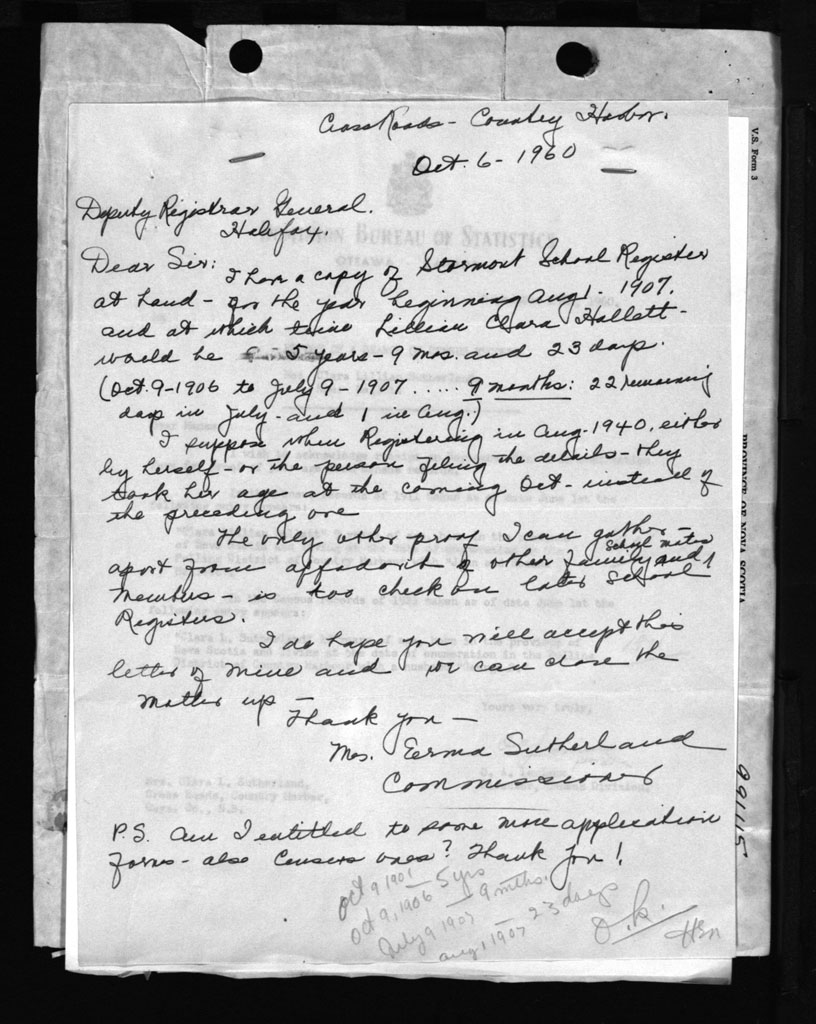 Cross Roads - Country Harbor.
Oct. 6 - 1960
Deputy Registrar General.
Halifax.
Dear Sir:
I have a copy of Stormont School Register
at hand - for the year beginning Aug 1 - 1907.
and at which time Lillian Clara Hallett -
would be 5 years - 9 mos. and 23 days.
(Oct. 9 - 1906 to July 9 - 1907 ..... 9 months: 22 remaining
days in July - and 1 in Aug.)
I suppose when Registering in Aug. 1940, either
by herself - or the person filing the details - they
took her age at the coming Oct - instead of
the preceding one
The only other proof I can gather -
apart from affadavit of other family and School mates
Members - is too check on later School
Registers.
I do hope you will accept this
letter of mine and we can close the
matter up -
Thank you -
Mrs. Eerma Sutherland
Commissioner
P.S. Am I entitled to some more application
forms - also Census ones? Thank You!
Oct 9 1901
Oct 9, 1906 - 5 yrs
July 9 1907 - 9 mths.
Aug 1 1907 - 23 days
O.K.
V.S. Form 3
PROVINCE OF NOVA SCOTIA
DOMINION BUREAU OF STATISTICS
OTTAWA
Yours very truly,
Mrs. Clara L. Sutherland,
Cross Roads, Country Harbor,
Guys. Co., N.S.